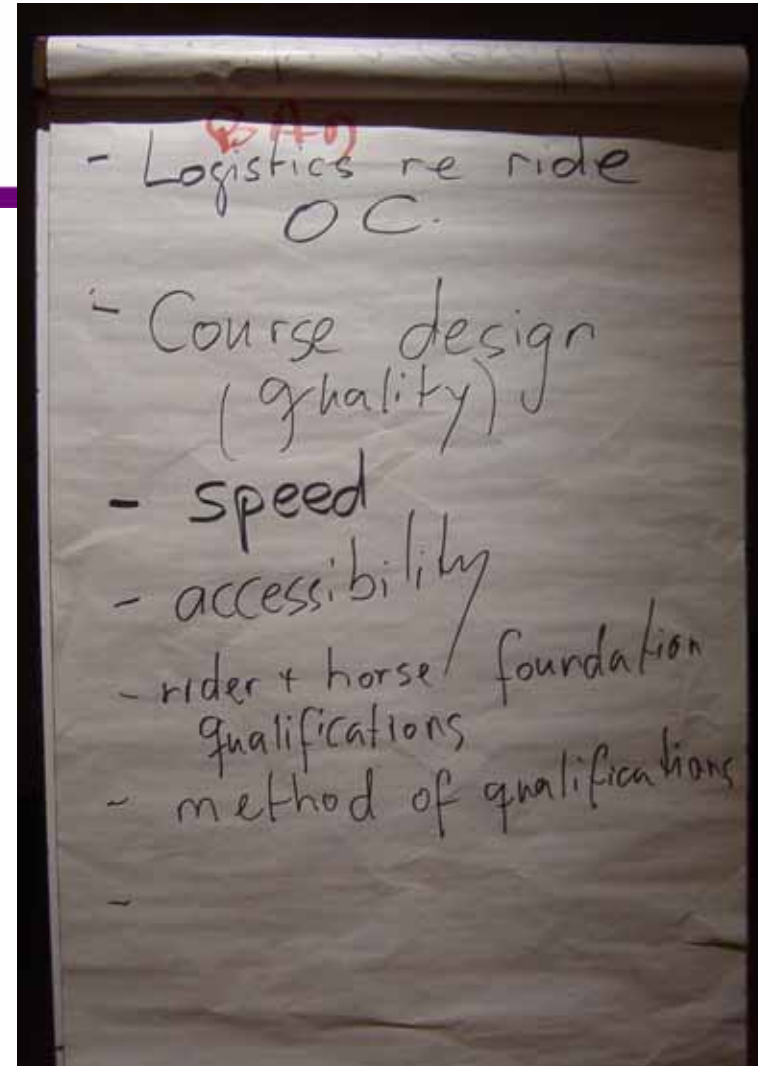 - Logistics re ride
OC.
- Course design
(quality)
- speed
- accessibility
- rider + horse foundation
qualifications
- method of qualifications
-